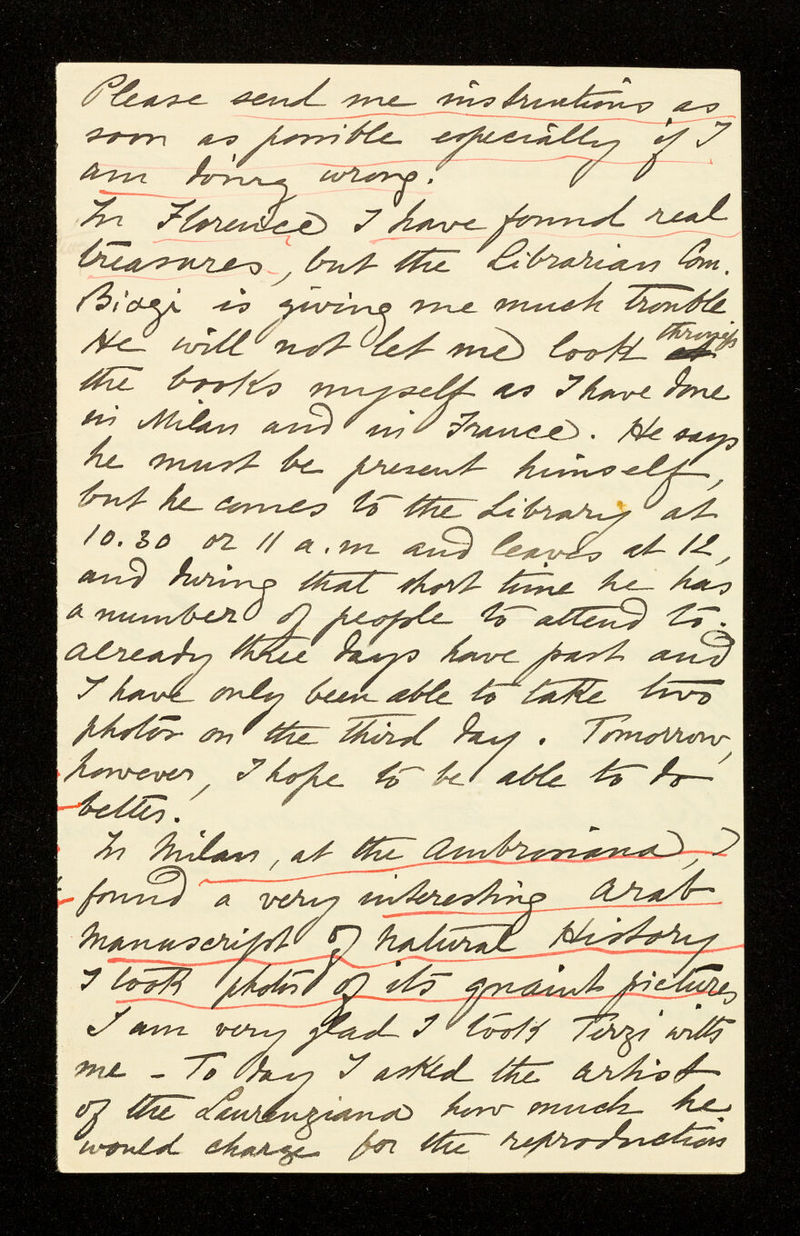 Please send me instructions as
soon as possible especially if I
am doing wrong.
In Florence I have found real
treasures, but the Librarian Com.
Biagi is giving me much trouble
He will not let me look through
the books myself as I have done
in Milan and in France. He says
he must be present himself,
but he comes to the Library at
10.30 or 11 a.m and leaves at 12,
and during that short time he has
a number of people to attend to.
Already three days have past and
I have only been able to take two
photos on the third day. Tomorrow,
however, I hope to be able to do
better.
In Milan, at the Ambrosiana, I
found a very interesting Arab
Manuscript of Natural History
I took photos of its quaint pictures
I am very glad I took Terzi with
me - To day I asked the artist
of the Laurenziana how much he
would charge for the reproduction